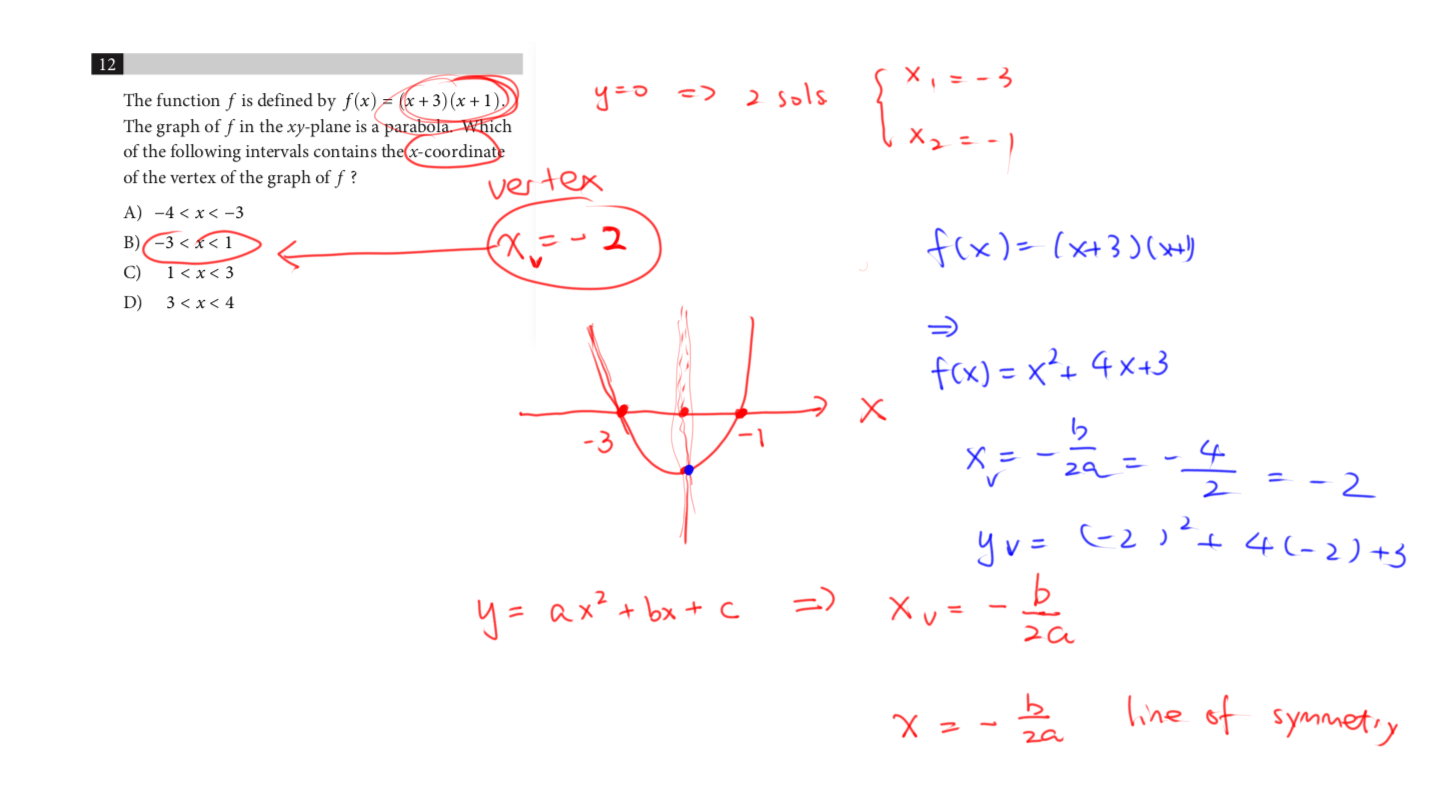 12
The function f is defined by f(x) = (x + 3)(x + 1).
The graph of f in the xy-plane is a parabola. Which
of the following intervals contains the x-coordinate
of the vertex of the graph of f ?
A) −4 < x < −3
B) −3 < x < 1
C) 1 < x < 3
D) 3 < x < 4
vertex
x_v = - 2
y=0 => 2 sols { x_1 = -3
x_2 = -1
-3
-1
X
f(x) = (x+3)(x+1)
=>
f(x) = x² + 4x+3
x_v = - b/2a = - 4/2 = - 2
y_v = (-2)² + 4(-2)+3
y = ax² + bx + c => x_v = - b/2a
x = - b/2a line of symmetry